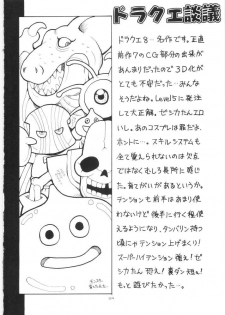 ドラクエ談議
ドラクエ8…名作です。正直
前作7のCG部分の出来が
あんまりだったので3D化が
とても不安だった…みんな
そうだよね。Level5に発注
して大正解。ゼシカたんエロ
いし。あのコスプレは罪だよ
ホントにー。スキルシステムも
全て覚えられないのは欠点
ではなくむしろ長所に感じ
る。育てがいがあるというか。
テンションも前半はあまり使
わないけど後半に行く程使
えるようになり、タンバリン持っ
た頃にゃテンション上げまくり!
スーパーハイテンション強え!ゼシ
カたん抑え!裏ダン短え!
もっと遊びたかったー。